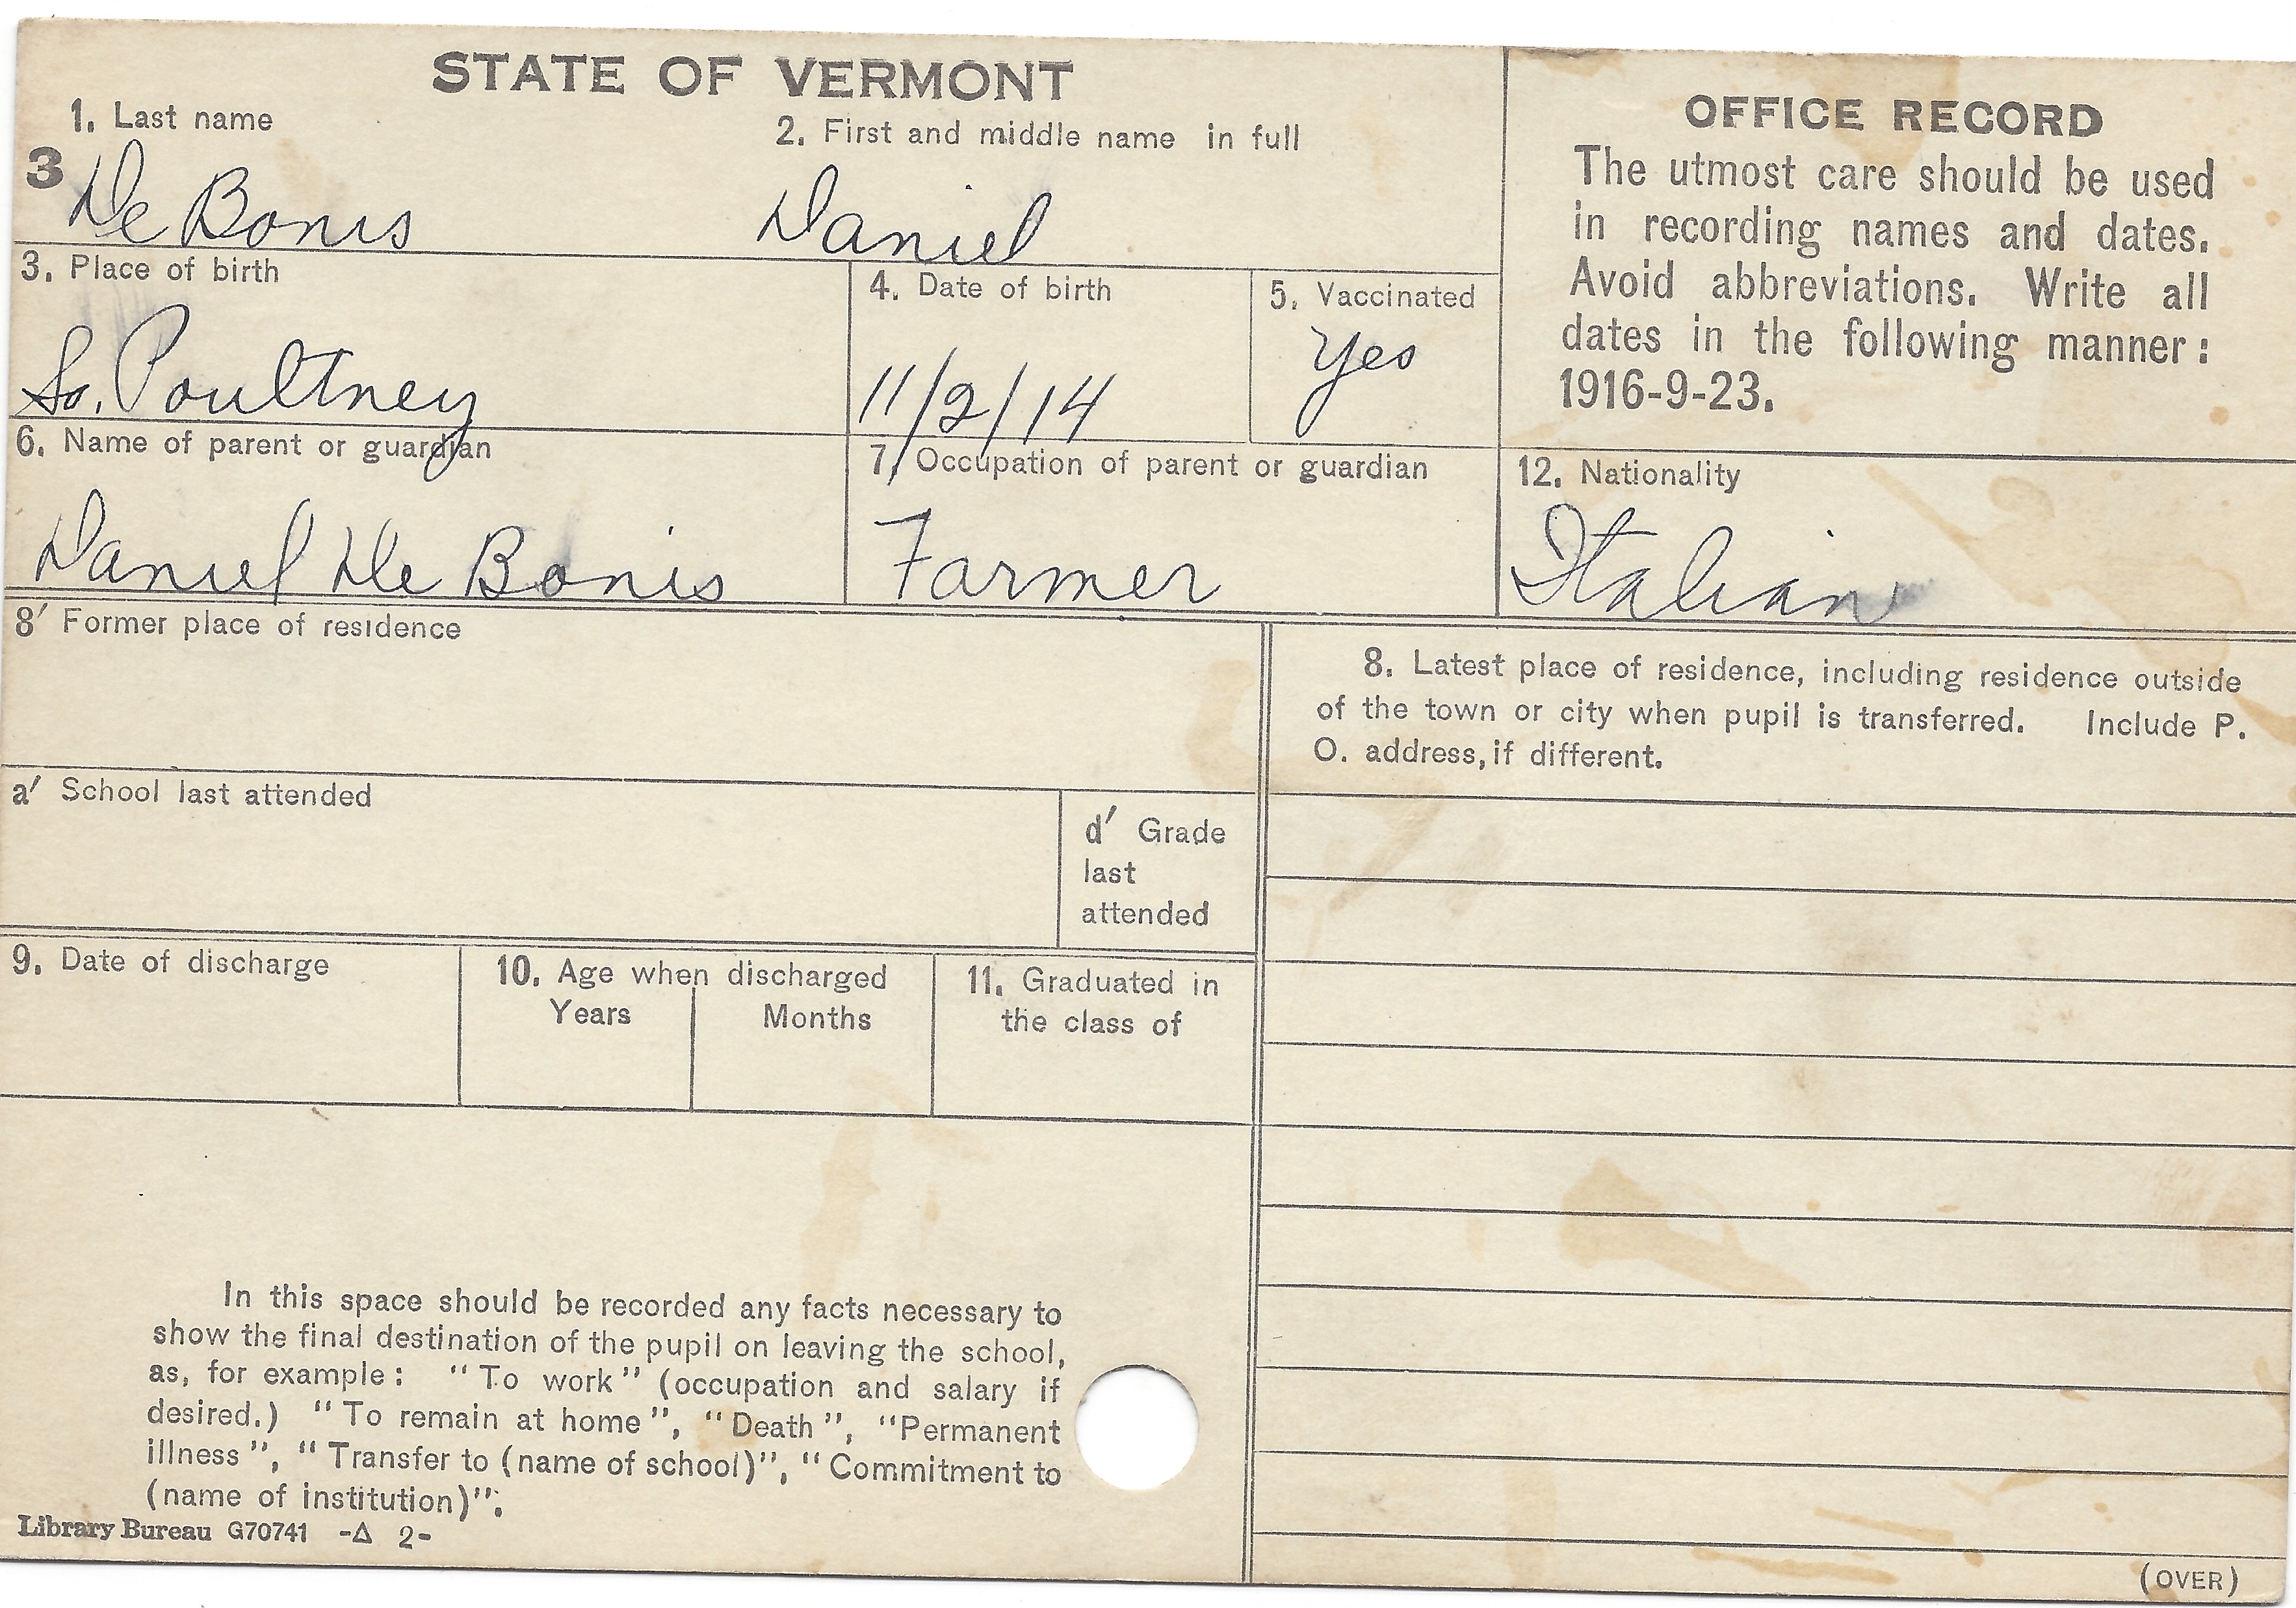 STATE OF VERMONT
1. Last name
2. First and middle name in full
3
De Bonis
Daniel
3. Place of birth
4. Date of birth
5. Vaccinated
So. Poultney
11/2/14
Yes
6. Name of parent or guardian
7. Occupation of parent or guardian
Daniel De Bonis
Farmer
OFFICE RECORD
The utmost care should be used
in recording names and dates.
Avoid abbreviations. Write all
dates in the following manner:
1916-9-23.
12. Nationality
Italian
8' Former place of residence
a' School last attended
d' Grade
last
attended
9. Date of discharge
10. Age when discharged
Years
Months
11. Graduated in
the class of
In this space should be recorded any facts necessary to
show the final destination of the pupil on leaving the school,
as, for example: "To work" (occupation and salary if
desired.) "To remain at home", "Death", "Permanent
illness", "Transfer to (name of school)", "Commitment to
(name of institution)".
Library Bureau G70741 -Δ 2-
8. Latest place of residence, including residence outside
of the town or city when pupil is transferred. Include P.
O. address, if different.
(OVER)